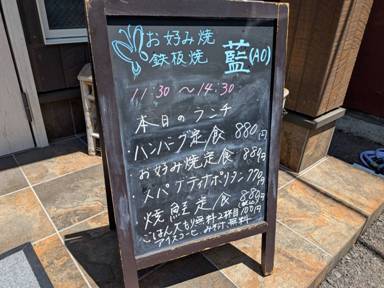 お好み焼
鉄板焼
藍(AO)
11:30 〜 14:30
本日のランチ
ハンバーグ定食 880円
・お好み焼定食 880円
・スパゲティナポリタン 770円
・焼鮭定食 880円
ごはん大もり無料 2杯目100円
アイスコーヒ みそ汁 無料